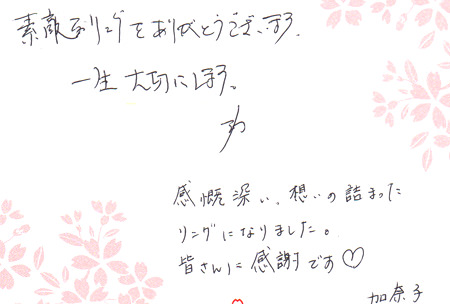 素敵なリングをありがとうございます。
一生大切にします。
感慨深い、想いの詰まった
リングになりました。
皆さんに感謝です♡
加奈子